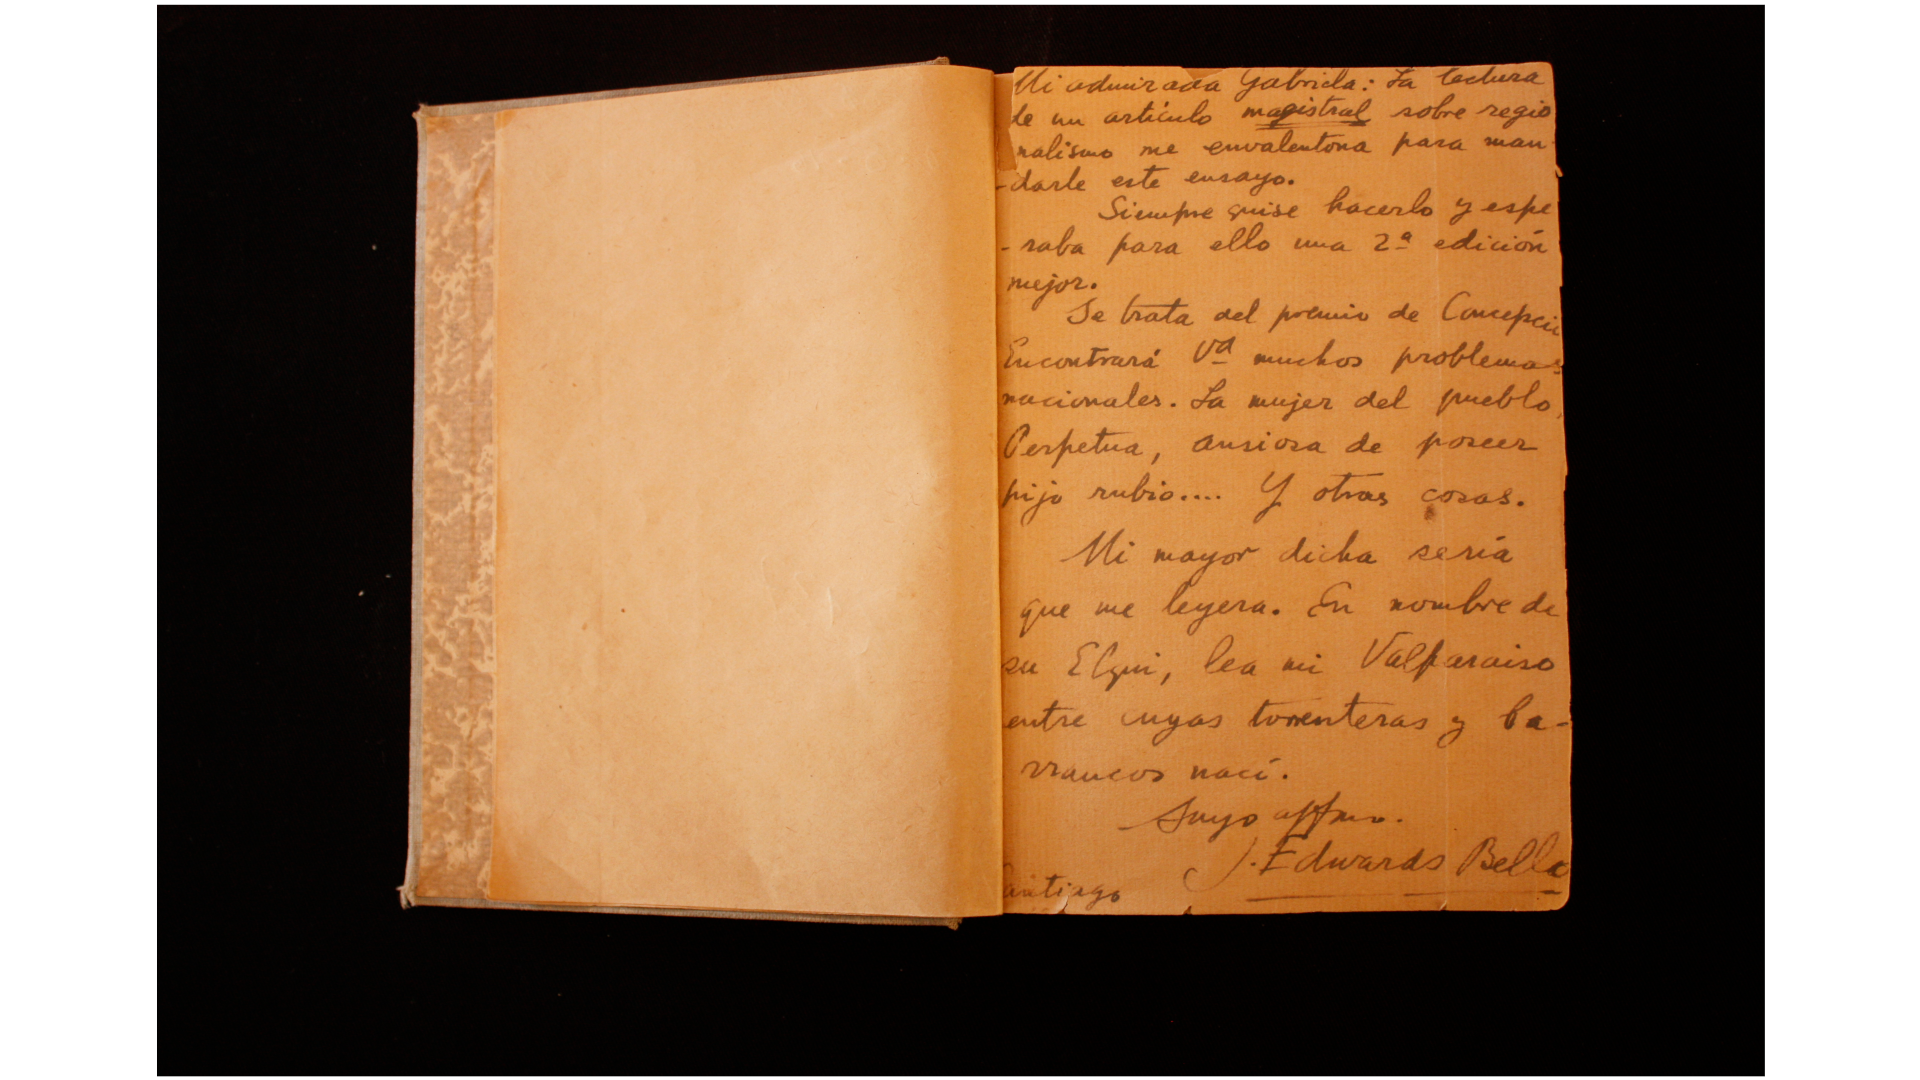 Mi admirada Gabriela: La lectura
de un artículo magistral sobre regio
nalismo me envalentona para man-
-darle este ensayo.
Siempre quise hacerlo y espe
-raba para ello una 2ª edición
mejor.
Se trata del premio de Concepció
Encontrará Vd muchos problemas
nacionales. La mujer del pueblo,
Perpetua, ansiosa de poseer
hijo rubio.... Y otras cosas.
Mi mayor dicha sería
que me leyera. En nombre de
su Elqui, lea mi Valparaiso
entre cuyas torrenteras y ba-
rrancos nací.
Suyo affmo.
J. Edwards Bello
Santiago